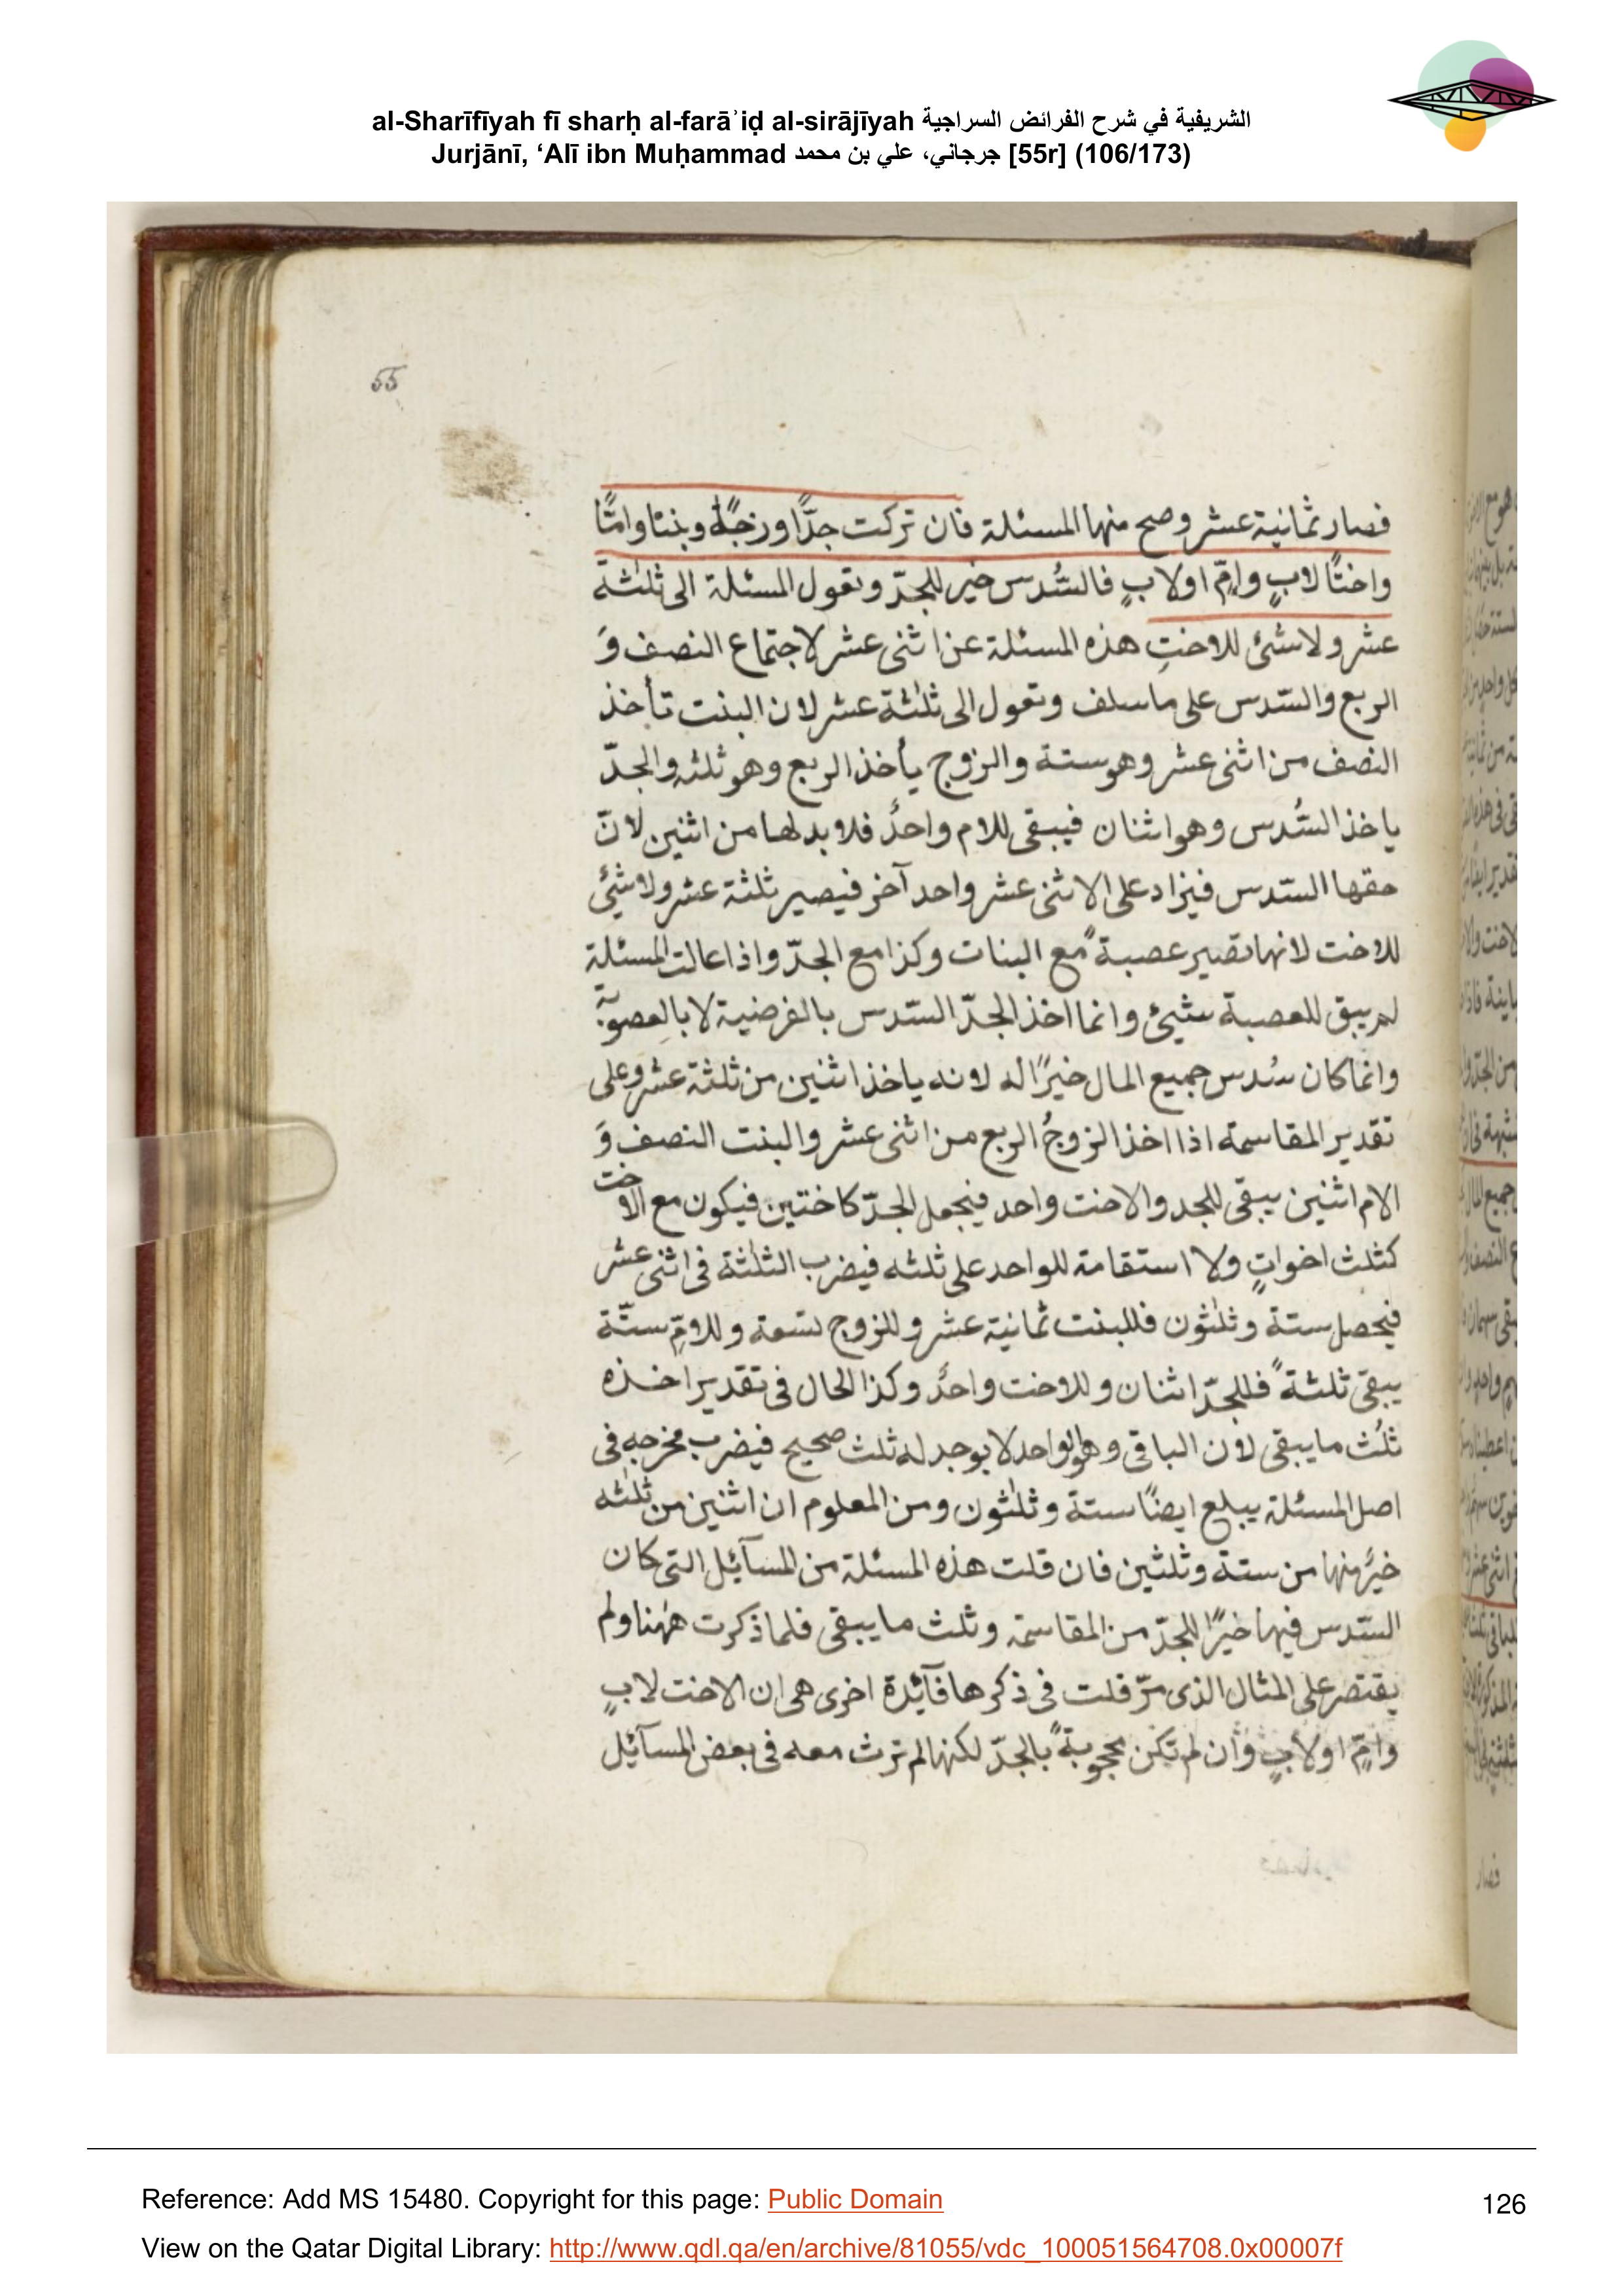 al-Sharīfīyah fī sharḥ al-farāʾiḍ al-sirājīyah الشريفية في شرح الفرائض السراجية
Jurjānī, ‘Alī ibn Muḥammad جرجاني، علي بن محمد [55r] (106/173)
55
فصار ثمانية عشر وصح منها المسئلة فان تركت جدًّا وزوجًا وبنتا وامًّا
واختًا لابٍ وامٍّ اولابٍ فالسُّدس خير للجدّ وتعول المسئلة الى ثلثة
عشر ولا شئ للاختِ هذه المسئلة عن اثنى عشر لاجتماع النصف وَ
الربع والسّدس على ما سلف وتعول الى ثلثة عشر لان البنت تأخذ
النصف من اثنى عشر وهو ستة والزوج يأخذ الربع وهو ثلثه والجدّ
ياخذ السُّدس وهو اثنان فيبقى للام واحدٌ فلا بد لها من اثنين لانّ
حقها السّدس فيزاد على الاثنى عشر واحد آخر فيصير ثلثة عشر ولا شئ
للاخت لانها تصير عصبةً مع البنات وكذا مع الجدّ واذا عالت المسئلة
لم يبق للعصبة شئ وانما اخذ الجدّ السّدس بالفرضية لا بالعصوبة
وانما كان سُدس جميع المال خيرًا له لانه ياخذ اثنين من ثلثة عشر وعلى
تقدير المقاسمة اذا اخذ الزوجُ الربع من اثنى عشر والبنت النصف وَ
الام اثنين يبقى للجد والاخت واحد فيجعل الجدّ كاختين فيكون مع الاخت
كثلث اخواتٍ ولا استقامة للواحد على ثلثه فيضرب الثلثة فى اثنى عشر
فيحصل ستة وثلثون فللبنت ثمانية عشر وللزوج تسعة وللامّ ستّة
يبقى ثلثةً فللجدّ اثنان وللاخت واحدٌ وكذا الحال فى تقدير اخذه
ثلُث ما يبقى لان الباقى وهو الواحد لا يوجد له ثلث صحيح فيضرب مخرجه فى
اصل المسئلة يبلغ ايضًا ستة وثلثون ومن المعلوم ان اثنين من ثلثه
خيرٌ منها من ستة وثلثين فان قلت هذه المسئلة من المسآئل التى كان
السّدس فيها خيرًا للجدّ من المقاسمة وثلث ما يبقى فلما ذكرت ههنا ولم
يقتصر على المثال الذى مرّ قلت فى ذكرها فآئدة اخرى هى ان الاخت لابٍ
وامٍّ اولابٍ وان لم تكن محجوبةً بالجدّ لكنها لم ترث معه فى بعض المسآئل
Reference: Add MS 15480. Copyright for this page: Public Domain
126
View on the Qatar Digital Library: http://www.qdl.qa/en/archive/81055/vdc_100051564708.0x00007f